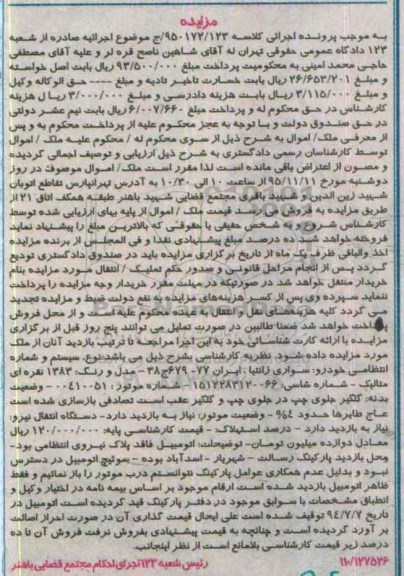 مزایده
به موجب پرونده اجرائی کلاسه ۹۵۰۱۷۲/۱۲۳/ج موضوع اجرائیه صادره از شعبه
۱۲۳ دادگاه عمومی حقوقی تهران له آقای شاهین ناصح قره لر و علیه آقای مصطفی
حاجی محمد امینی به محکومیت پرداخت مبلغ ۹۳/۵۰۰/۰۰۰ ریال بابت اصل خواسته
و مبلغ ۲۶/۶۵۳/۲۰۱ ریال بابت خسارت تاخیر تادیه و مبلغ ---- حق الوکاله وکیل
و مبلغ ۳/۱۱۵/۰۰۰ ریال بابت هزینه دادرسی و مبلغ ۳/۰۰۰/۰۰۰ ریال هزینه
کارشناس در حق محکوم له و پرداخت مبلغ ۶/۰۰۷/۶۶۰ ریال بابت نیم عشر دولتی
در حق صندوق دولت و با توجه به عجز محکوم علیه از پرداخت محکوم به و پس
از معرفی ملک/ اموال به شرح ذیل از سوی محکوم له / محکوم علیه ملک / اموال
توسط کارشناسان رسمی دادگستری به شرح ذیل ارزیابی و توصیف اجمالی گردیده
و مصون از اعتراض باقی مانده است لذا مقرر است ملک/ اموال موصوف در روز
دوشنبه مورخ ۹۵/۱۱/۱۱ از ساعت ۱۰ الی ۱۰/۳۰ به آدرس تهرانپارس تقاطع اتوبان
شهید زین الدین و شهید باقری مجتمع قضایی شهید باهنر طبقه همکف اتاق ۲۱ از
طریق مزایده به فروش می رسد قیمت ملک / اموال از پایه بهای ارزیابی شده توسط
کارشناس شروع و به شخص حقیقی یا حقوقی که بالاترین مبلغ را پیشنهاد نماید
فروخته خواهد شد ده درصد مبلغ پیشنهادی نقدا و فی المجلس از برنده مزایده
اخذ والباقی ظرف یک ماه از تاریخ برگزاری مزایده باید در صندوق دادگستری تودیع
گردد پس از انجام مراحل قانونی و صدور حکم تملیک / انتقال مورد مزایده بنام
خریدار منتقل خواهد شد در صورتیکه در مهلت مقرر خریدار وجه مزایده را پرداخت
ننماید سپرده وی پس از کسر هزینه‌های مزایده به نفع دولت ضبط و مزایده تجدید
می گردد کلیه هزینه‌های نقل و انتقال به عهده محکوم علیه است و از محل فروش
خواهد شد ضمنا طالبین در صورت تمایل می توانند پنج روز قبل از برگزاری
مزایده با ارائه کارت شناسائی خود به این اجرا مراجعه تا ترتیب بازدید آنان از ملک
مورد مزایده داده شود. نظریه کارشناسی بشرح ذیل می باشد:نوع، سیستم و شماره
انتظامی خودرو: سواری زانتیا ، ایران ۷۷- ۶۷۹ج۳۸ - مدل و رنگ: ۱۳۸۳ نقره ای
متالیک - شماره شاسی: ۱۵۱۲۲۸۳۱۲۰۰۶۶ - شماره موتور: ۰۰۴۱۰۰۵۱ - وضعیت
بدنه: گلگیر جلوی چپ در جلوی چپ و گلگیر عقب است تصادفی بازسازی شده است
عاج طایرها حدود ۴۰% - وضعیت موتور: نیاز به بازدید دارد- دستگاه انتقال نیرو:
نیاز به بازدید دارد - درصد استهلاک: - قیمت کارشناسی پایه: ۱۲۰/۰۰۰/۰۰۰ ریال
معادل دوازده میلیون تومان- توضیحات: اتومبیل فاقد پلاک نیروی انتظامی بود-
محل بازدید پارکینگ رسالت - شهریار - اسدآباد بوده - سوئیچ اتومبیل در دسترس
نبود و بدلیل عدم همکاری عوامل پارکینگ نتوانستم درب موتور را باز نمائیم و فقط
ظاهر اتومبیل بازدید شده است ارقام موجود بر اساس بیمه نامه در اختیار وکیل و
انطباق مشخصات با سوابق موجود در دفتر پارکینگ قید گردیده است اتومبیل در
تاریخ ۹۴/۷/۷ توقیف شده است علی ایحال قیمت گذاری آن در صورت احراز اصالت
بر آورد گردیده است و چنانچه به قیمت پیشنهادی بفروش نرفت فروش آن تا ده
درصد زیر قیمت کارشناسی بلامانع است از نظر اینجانب.
۱۱۰/۱۲۷۵۳۶ رئیس شعبه ۱۲۳ اجرای احکام مجتمع قضایی باهنر